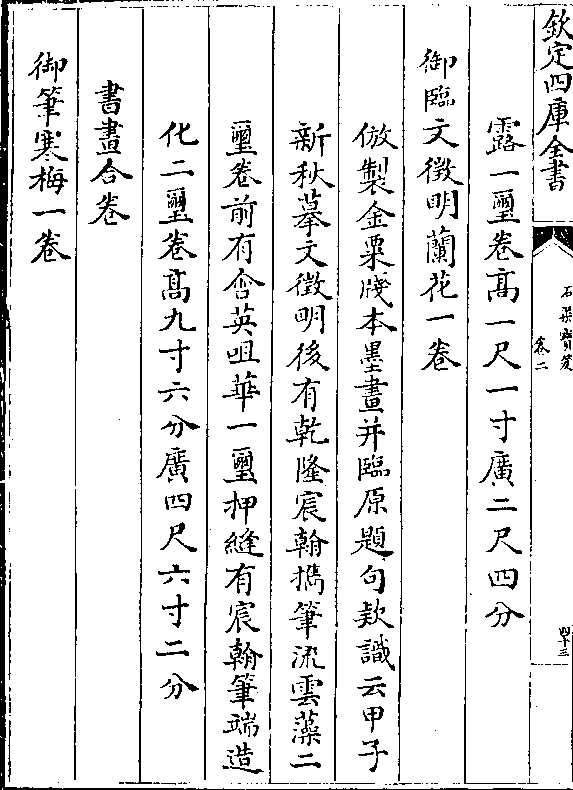 欽定四庫全書
石渠寶笈
卷二
四十三
露一璽卷髙一尺一寸廣二尺四分
御臨文徵明蘭花一卷
倣製金粟牋本墨畫并臨原題句欵識云甲子
新秋摹文徵明後有乾隆宸翰擕筆流雲藻二
璽卷前有含英咀華一璽押縫有宸翰筆端造
化二璽卷髙九寸六分廣四尺六寸二分
書畫合卷
御筆寒梅一卷